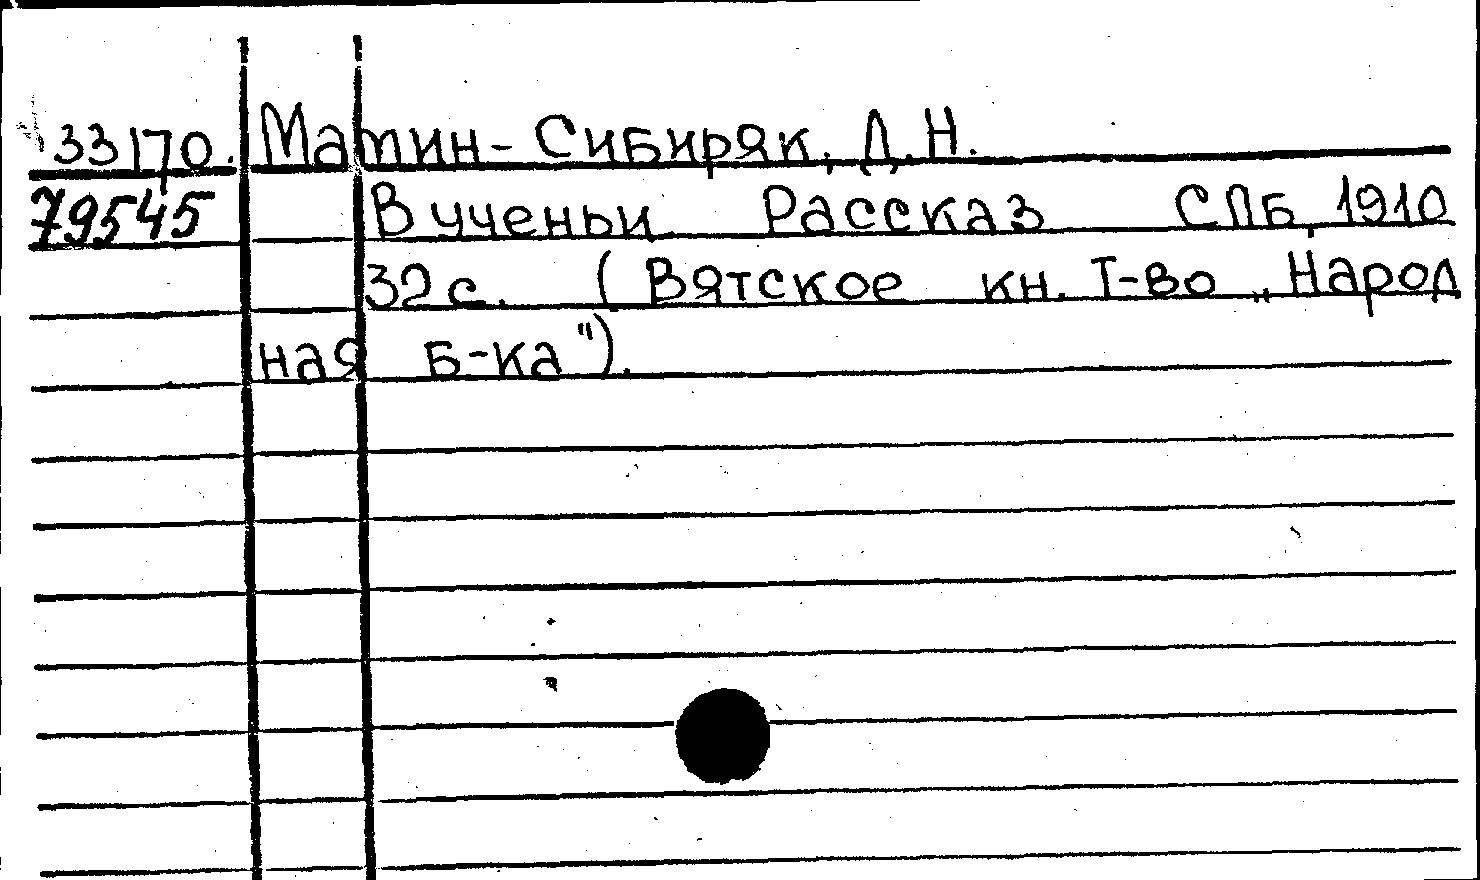 33170. Мамин-Сибиряк, Д.Н.
79545 В ученьи Рассказ СПБ, 1910
32 с. (Вятское кн. Т-во „Народ
ная Б-ка").